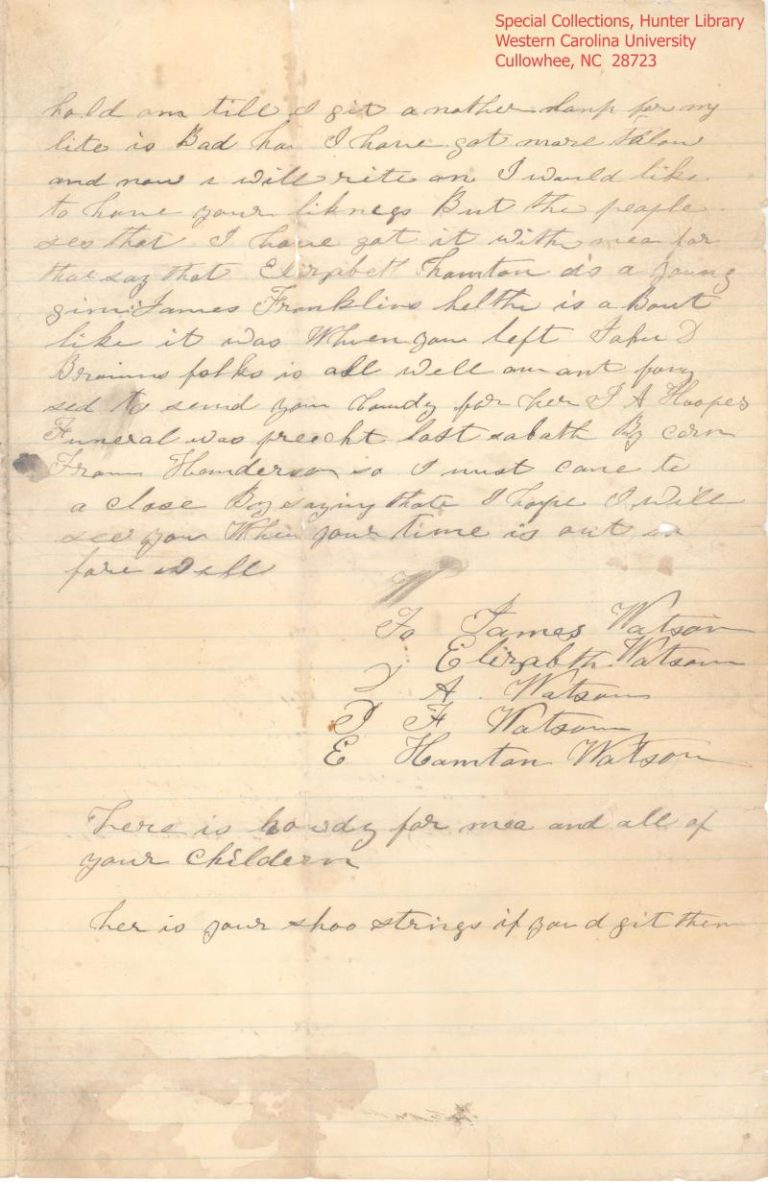 Special Collections, Hunter Library
Western Carolina University
Cullowhee, NC 28723
hold on till I git a nother for my
lite is Bad ha I have got more
and now i will rite on I would like
to have your likness But the people
ses that I have got it with mea for
thae say that Elizabeth is a young
James Franklins helth is a Bout
like it was When you left D
folks is all well our ant
sed to send you houdy for her J A Hoopes
Funeral was preecht last sabath By corn
From Henderson so I must come to
a close By saying that I hope I will
see you When your time is out so
fare well
To James Watson
Elizabth Watson
J A Watson
J F Watson
E Hamton Watson
here is howdy for mea and all of
your childern
her is your shoo strings if you d git them